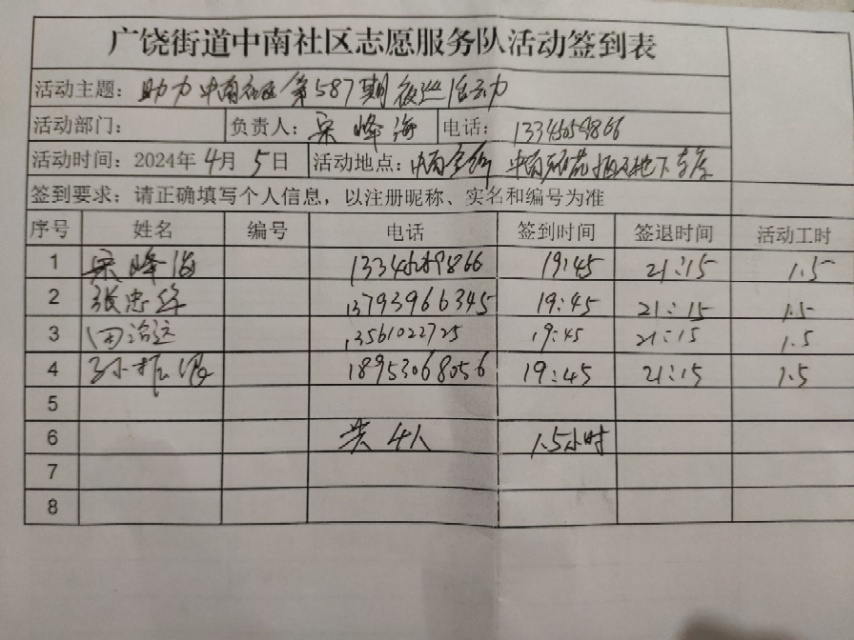 广饶街道中南社区志愿服务队活动签到表
活动主题：助力中南社区第587期夜巡活动
活动部门： 负责人：宋峰海 电话：
活动时间：2024年4月5日 活动地点：中南 中南 地下车库
签到要求：请正确填写个人信息，以注册昵称、实名和编号为准
序号 姓名 编号 电话 签到时间 签退时间 活动工时
1 宋峰海 19:45 21:15 1.5
2 张忠 13793966345 19:45 21:15 1.5
3 田治远 13561022725 19:45 21:15 1.5
4 孙振 18953068056 19:45 21:15 1.5
5
6 共4人 1.5小时
7
8